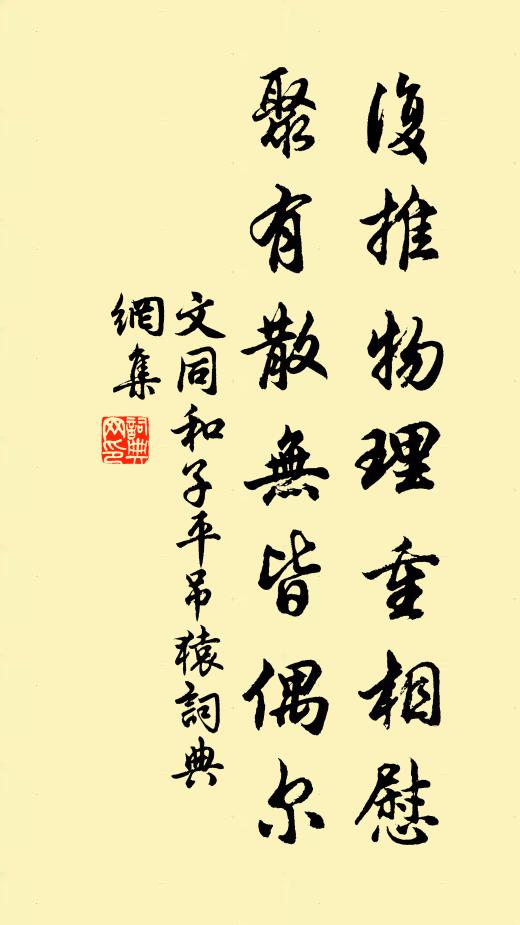 復推物理重相慰
聚有散無皆偶尔
文同和子平吊猿詞典
網集
詞典網印